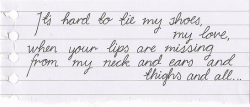 It's hard to tie my shoes,
my love,
when your lips are missing
from my neck and ears and
thighs and all...